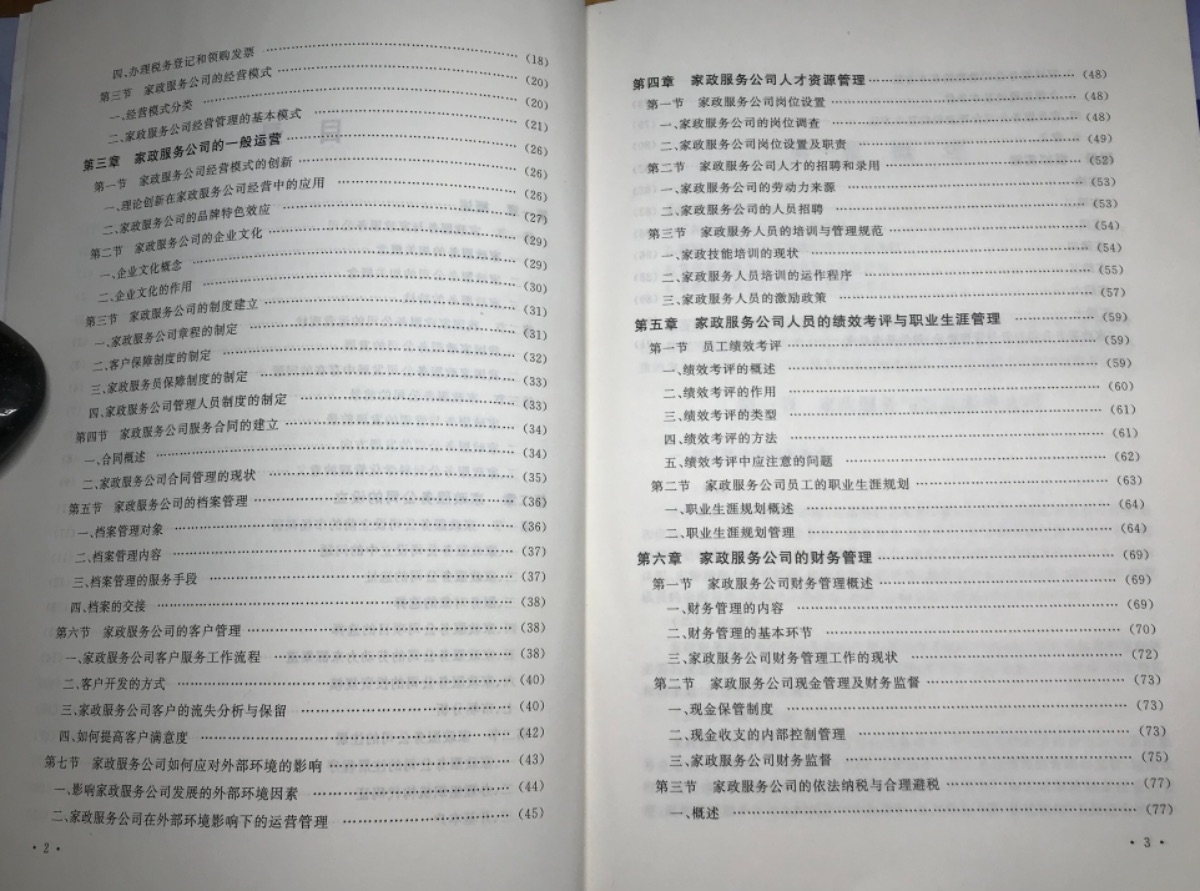 四、办理税务登记和领购发票 …… (18)
第三节 家政服务公司的经营模式 …… (20)
一、经营模式分类 …… (20)
二、家政服务公司经营管理的基本模式 …… (21)
第三章 家政服务公司的一般运营 …… (26)
第一节 家政服务公司经营模式的创新 …… (26)
一、理论创新在家政服务公司经营中的应用 …… (26)
二、家政服务公司的品牌特色效应 …… (27)
第二节 家政服务公司的企业文化 …… (29)
一、企业文化概念 …… (29)
二、企业文化的作用 …… (30)
第三节 家政服务公司的制度建立 …… (31)
一、家政服务公司章程的制定 …… (31)
二、客户保障制度的制定 …… (32)
三、家政服务员保障制度的制定 …… (33)
四、家政服务公司管理人员制度的制定 …… (33)
第四节 家政服务公司服务合同的建立 …… (34)
一、合同概述 …… (34)
二、家政服务公司合同管理的现状 …… (35)
第五节 家政服务公司的档案管理 …… (36)
一、档案管理对象 …… (36)
二、档案管理内容 …… (37)
三、档案管理的服务手段 …… (37)
四、档案的交接 …… (38)
第六节 家政服务公司的客户管理 …… (38)
一、家政服务公司客户服务工作流程 …… (38)
二、客户开发的方式 …… (40)
三、家政服务公司客户的流失分析与保留 …… (40)
四、如何提高客户满意度 …… (42)
第七节 家政服务公司如何应对外部环境的影响 …… (43)
一、影响家政服务公司发展的外部环境因素 …… (44)
二、家政服务公司在外部环境影响下的运营管理 …… (45)
· 2 ·
第四章 家政服务公司人才资源管理 …… (48)
第一节 家政服务公司岗位设置 …… (48)
一、家政服务公司的岗位调查 …… (48)
二、家政服务公司岗位设置及职责 …… (49)
第二节 家政服务公司人才的招聘和录用 …… (52)
一、家政服务公司的劳动力来源 …… (53)
二、家政服务公司的人员招聘 …… (53)
第三节 家政服务人员的培训与管理规范 …… (54)
一、家政技能培训的现状 …… (54)
二、家政服务人员培训的运作程序 …… (55)
三、家政服务人员的激励政策 …… (57)
第五章 家政服务公司人员的绩效考评与职业生涯管理 …… (59)
第一节 员工绩效考评 …… (59)
一、绩效考评的概述 …… (59)
二、绩效考评的作用 …… (60)
三、绩效考评的类型 …… (61)
四、绩效考评的方法 …… (61)
五、绩效考评中应注意的问题 …… (62)
第二节 家政服务公司员工的职业生涯规划 …… (63)
一、职业生涯规划概述 …… (64)
二、职业生涯规划管理 …… (64)
第六章 家政服务公司的财务管理 …… (69)
第一节 家政服务公司财务管理概述 …… (69)
一、财务管理的内容 …… (69)
二、财务管理的基本环节 …… (70)
三、家政服务公司财务管理工作的现状 …… (72)
第二节 家政服务公司现金管理及财务监督 …… (73)
一、现金保管制度 …… (73)
二、现金收支的内部控制管理 …… (73)
三、家政服务公司财务监督 …… (75)
第三节 家政服务公司的依法纳税与合理避税 …… (77)
一、概述 …… (77)
· 3 ·